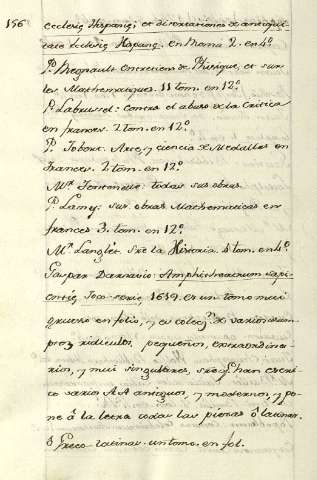 156
ecclesiæ Hispanæ, et disertationes de antiqui-
tate Ecclesiæ Hispanæ. en Roma 2. en 4º
P. Regnault: entretiens de Phisique, et sur
les Mathematiques. 11 tom. en 12º
P. Labrussel: contra el abuso de la Critica
en frances. 2 tom. en 12º
P. Jobert. Arte, y ciencia de Medallas en
Frances. 2 tom. en 12º
Mr. Fontenelle: todas sus obras.
P. Lamy: sus obras Mathematicas en
frances 3. tom. en 12º.
Mr. Langlet. Sre la Historia. 4 tom. en 4º.
Gaspar Dornavio: Amphitheatrum sapi-
entiæ, Joco-seriæ, 1619. es un tomo mui
grueso en folio, y es colecn. de varios asum-
ptos ridiculos, pequeños, extraordina-
rios, y mui singulares, sre q.e han escri-
to varios AA antiguos, y modernos, y po-
ne â la letra todas las piezas ô latinas,
ô Greco-latinas. un tomo en fol.